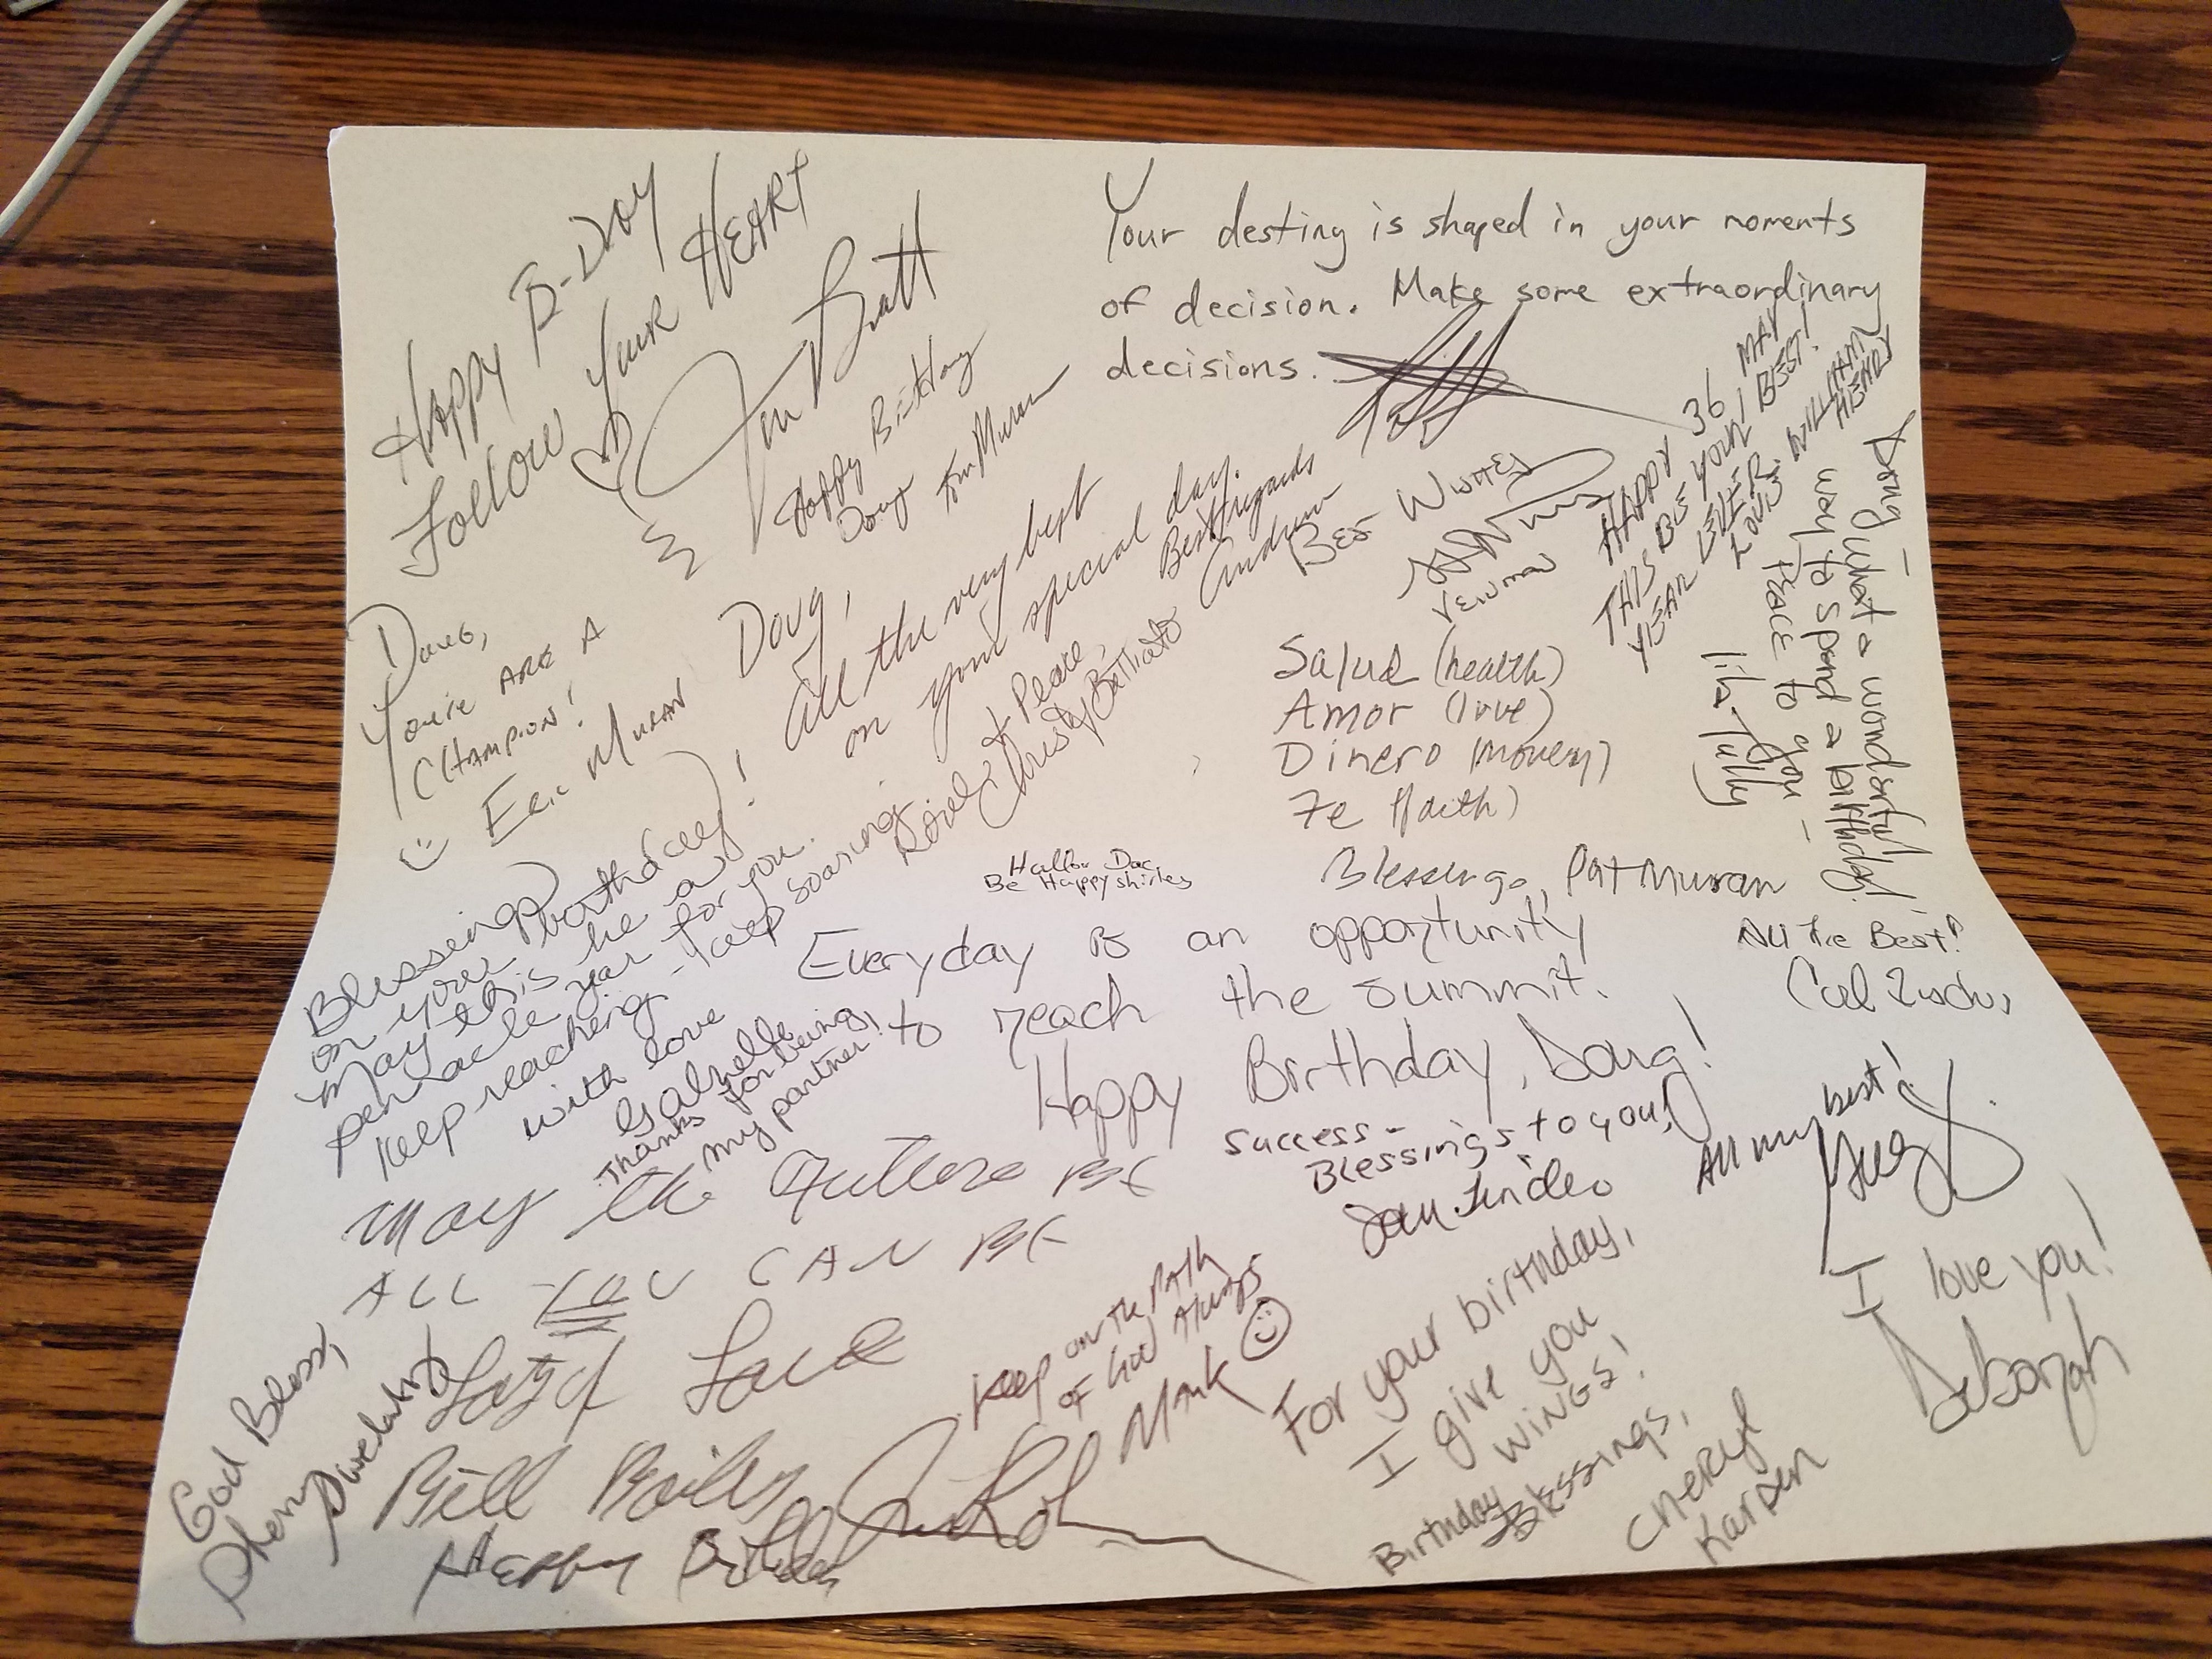 Happy B-Day
Follow Your HEART
Jim Britt
Happy Birthday
Doug
Your destiny is shaped in your moments
of decision. Make some extraordinary
decisions.
HAPPY 36 MAY
THIS BE YOUR BEST!
YEAR EVER.
LOVE, WILLIAM
HENRY
Doug –
what a wonderful
way to spend a birthday!
Peace to you –
Lila Tully
Best Wishes
Doug,
You're ARE A
CHAMPION!
Eric Muran
Doug,
All the very best
on your special day.
Best regards
Andrew
Love & Peace,
Christy
Salud (health)
Amor (love)
Dinero (money)
Fe (faith)
Blessings, Pat Muran
Be Happy
Blessings
on your birthday!
May this be a
year for you.
Keep reaching - keep soaring
with love
Gabrielle
Thanks for being
my partner!
Everyday is an opportunity
to reach the summit.
Happy Birthday, Doug!
All the Best!
Success -
Blessings to you!
All my best!
May the Future BE
ALL YOU CAN BE
Love
Bill Bailey
Keep on the Path
of God Always
Mark
For your birthday,
I give you
WINGS!
Birthday
Blessings,
Cheryl
Karpen
I love you!
Deborah
God Bless,
Happy Birthday